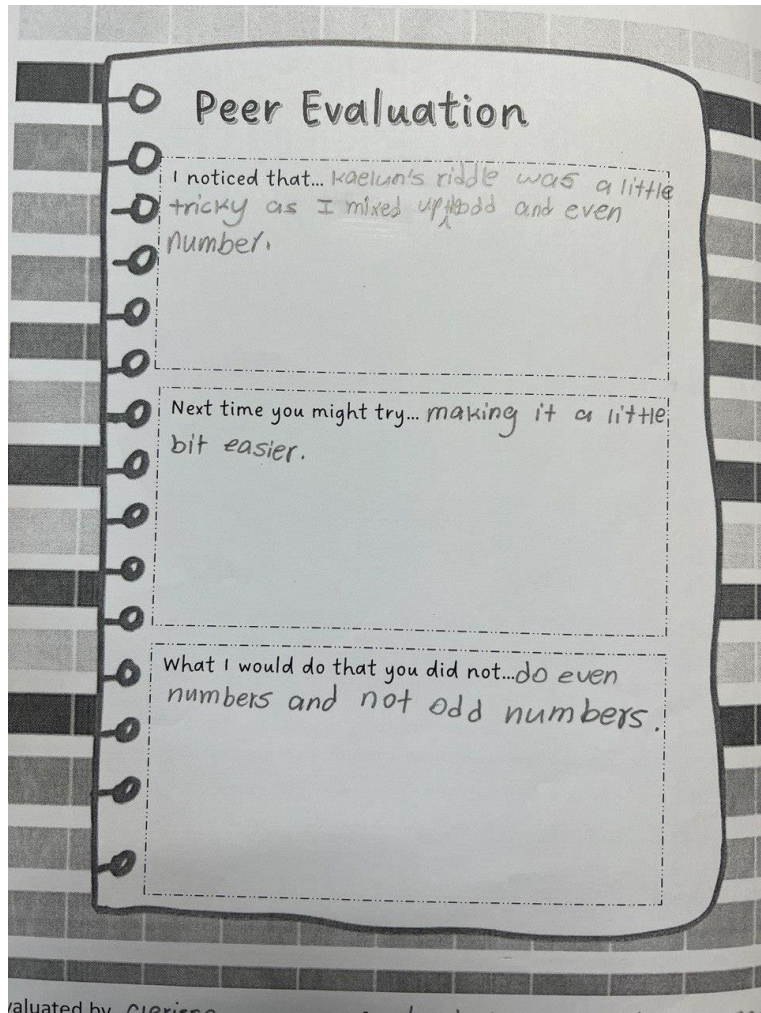 Peer Evaluation
I noticed that... Kaelun's riddle was a little
tricky as I mixed up the odd and even
number.
Next time you might try... making it a little
bit easier.
What I would do that you did not...do even
numbers and not odd numbers.
valuated by